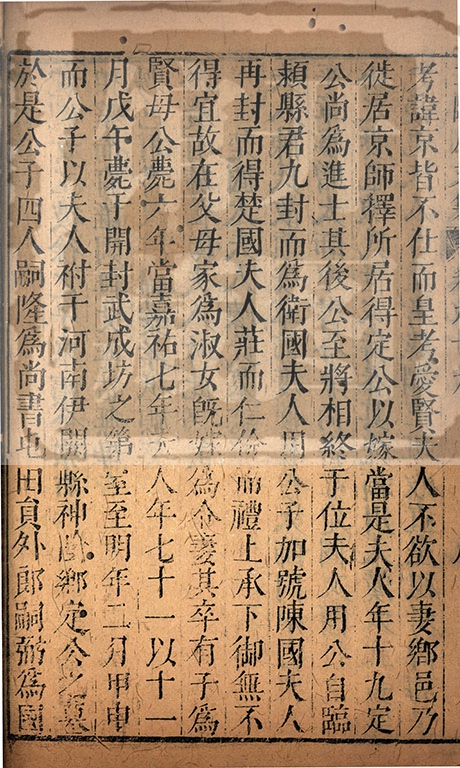 考諱京皆不仕而皇考愛賢夫人不欲以妻鄉邑乃
徙居京師擇所居得定公以嫁當是夫人年十九定
公尚爲進士其後公至將相終于位夫人用公自臨
潁縣君九封而爲衛國夫人用公子加號陳國夫人
再封而得楚國夫人莊而仁儉而禮上承下御無不
得宜故在父母家爲淑女既嫁爲令妻其卒有子爲
賢母公薨六年當嘉祐七年夫人年七十一以十一
月戊午薨于開封武成坊之第室至明年二月甲申
而公子以夫人祔于河南伊闕縣神陰鄉定公之墓
於是公子四人嗣隆爲尚書屯田員外郎嗣弼爲國